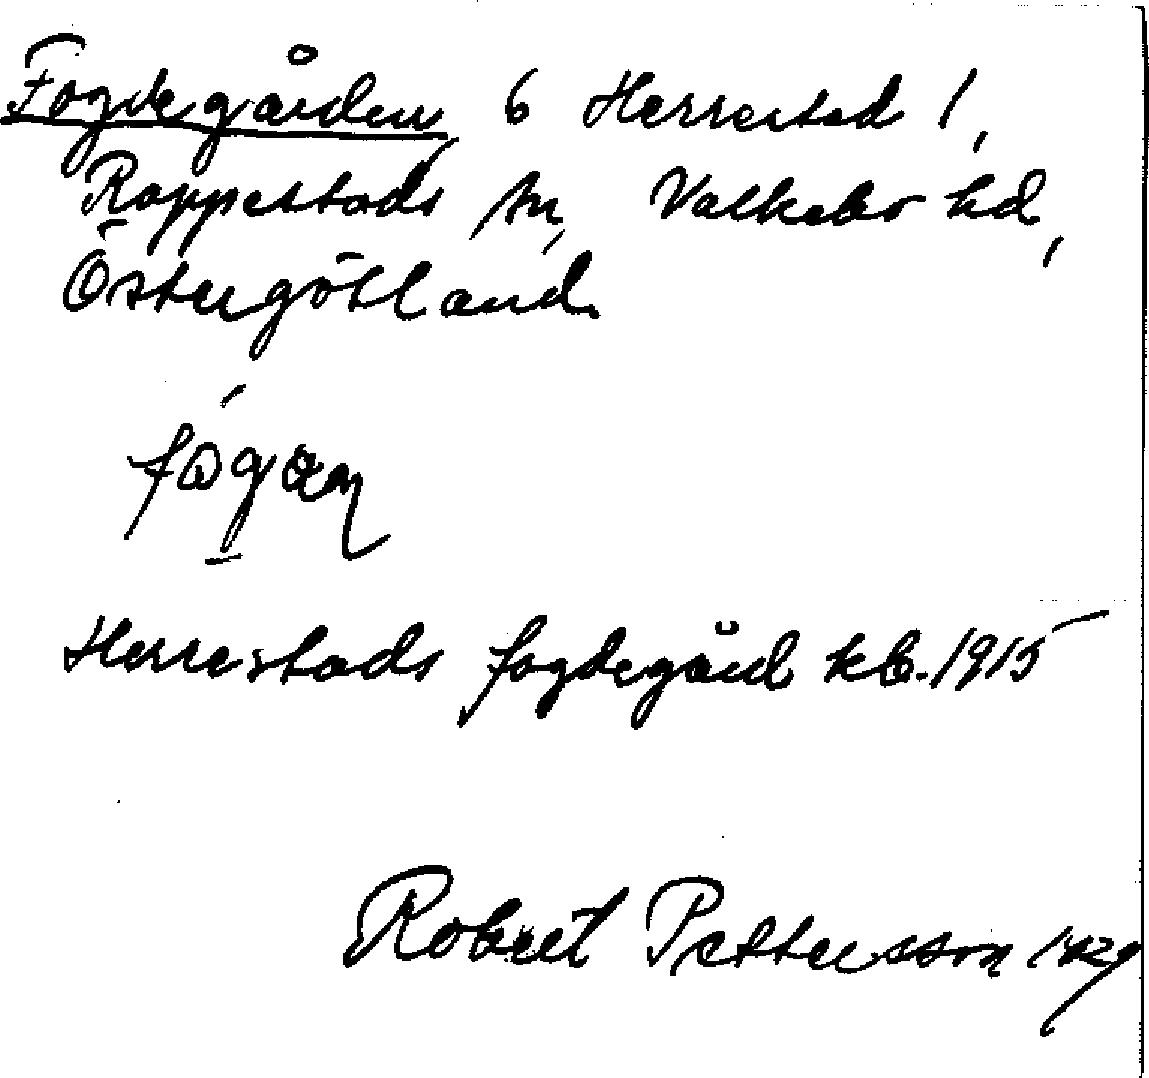 Fogdegården 6 Herrestad 1,
Rappestads sn, Valkebo hd,
Östergötland.
Herrestads fogdegård kb. 1915
Robert Pettersson 1929